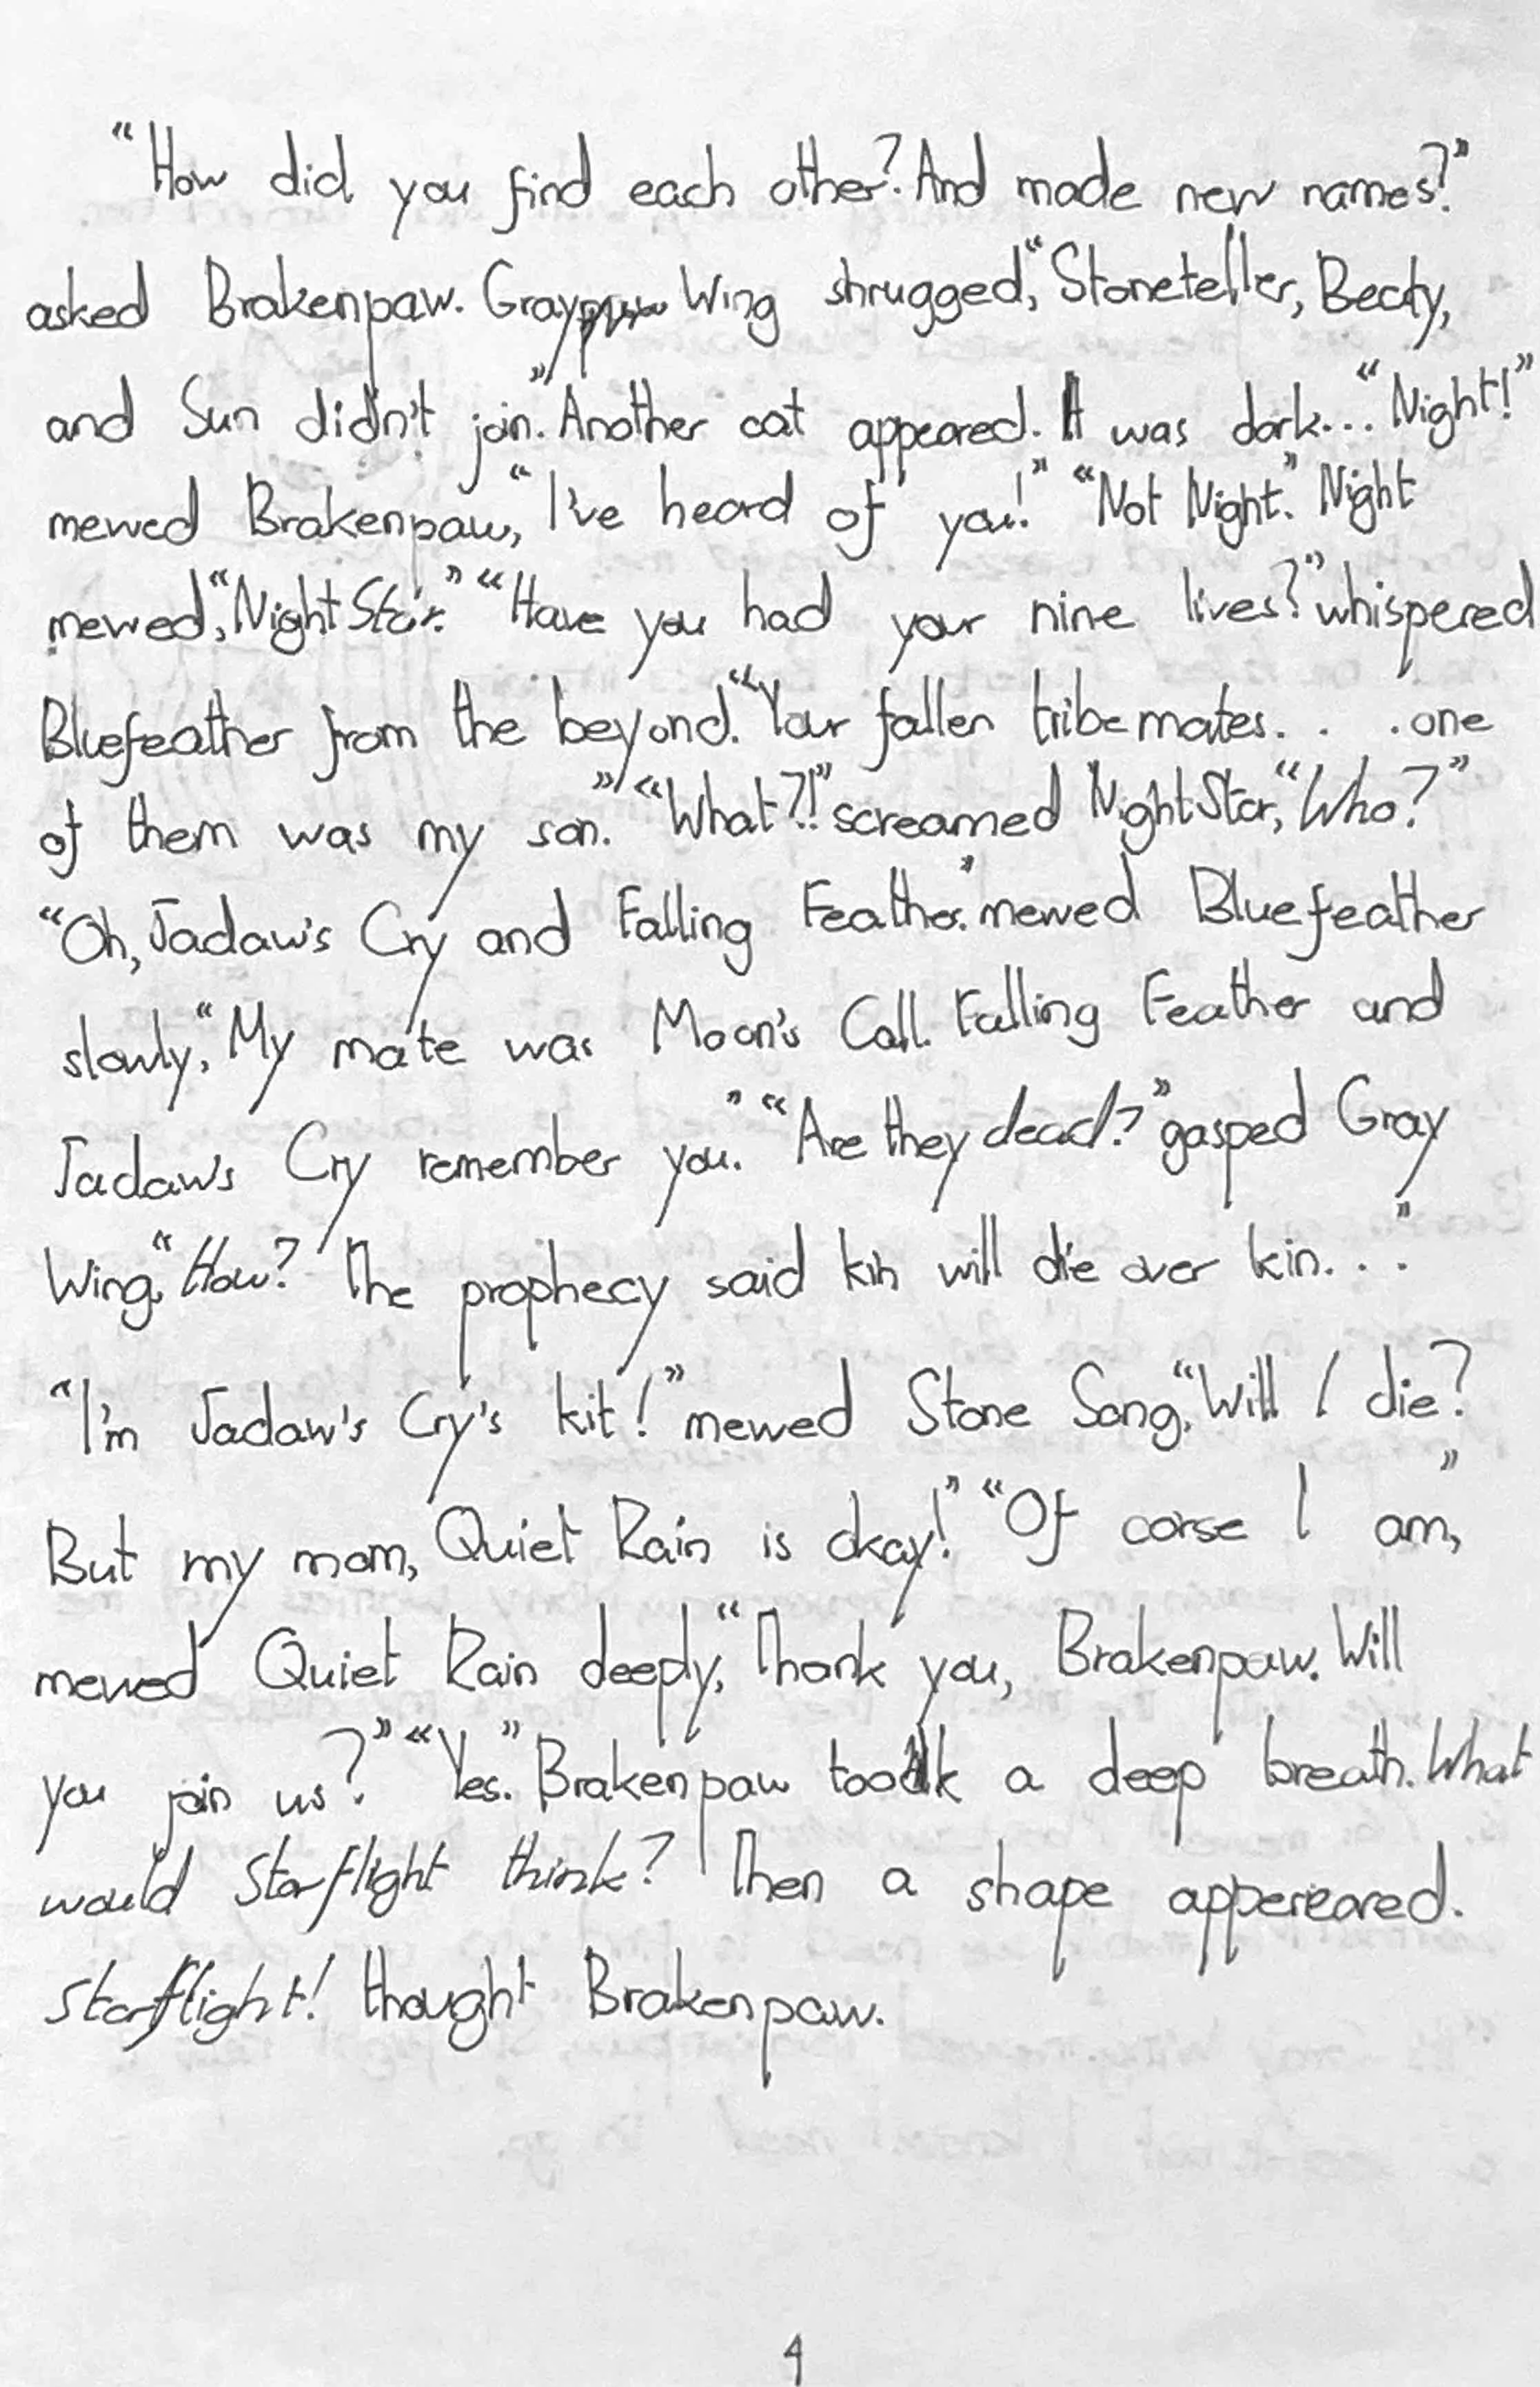 "How did you find each other? And made new names?"
asked Brakenpaw. Gray Wing shrugged, "Stoneteller, Becty,
and Sun didn't join." Another cat appeared. It was dark... "Night!"
mewed Brakenpaw, "I've heard of you!" "Not Night." Night
mewed, "NightStar." "Have you had your nine lives?" whispered
Bluefeather from the beyond. "Your fallen tribemates. . . .one
of them was my son." "What?!" screamed NightStar, "Who?"
"Oh, Jadaw's Cry and Falling Feather." mewed Bluefeather
slowly, "My mate was Moon's Call. Falling Feather and
Jadaw's Cry remember you." "Are they dead?" gasped Gray
Wing, "How? The prophecy said kin will die over kin. . ."
"I'm Jadaw's Cry's kit!" mewed Stone Song, "Will I die?
But my mom, Quiet Rain is okay!" "Of corse I am,"
mewed Quiet Rain deeply, "Thank you, Brakenpaw. Will
you join us?" "Yes." Brakenpaw took a deep breath. What
would Starflight think? Then a shape appereared.
Starflight! thought Brakenpaw.
4